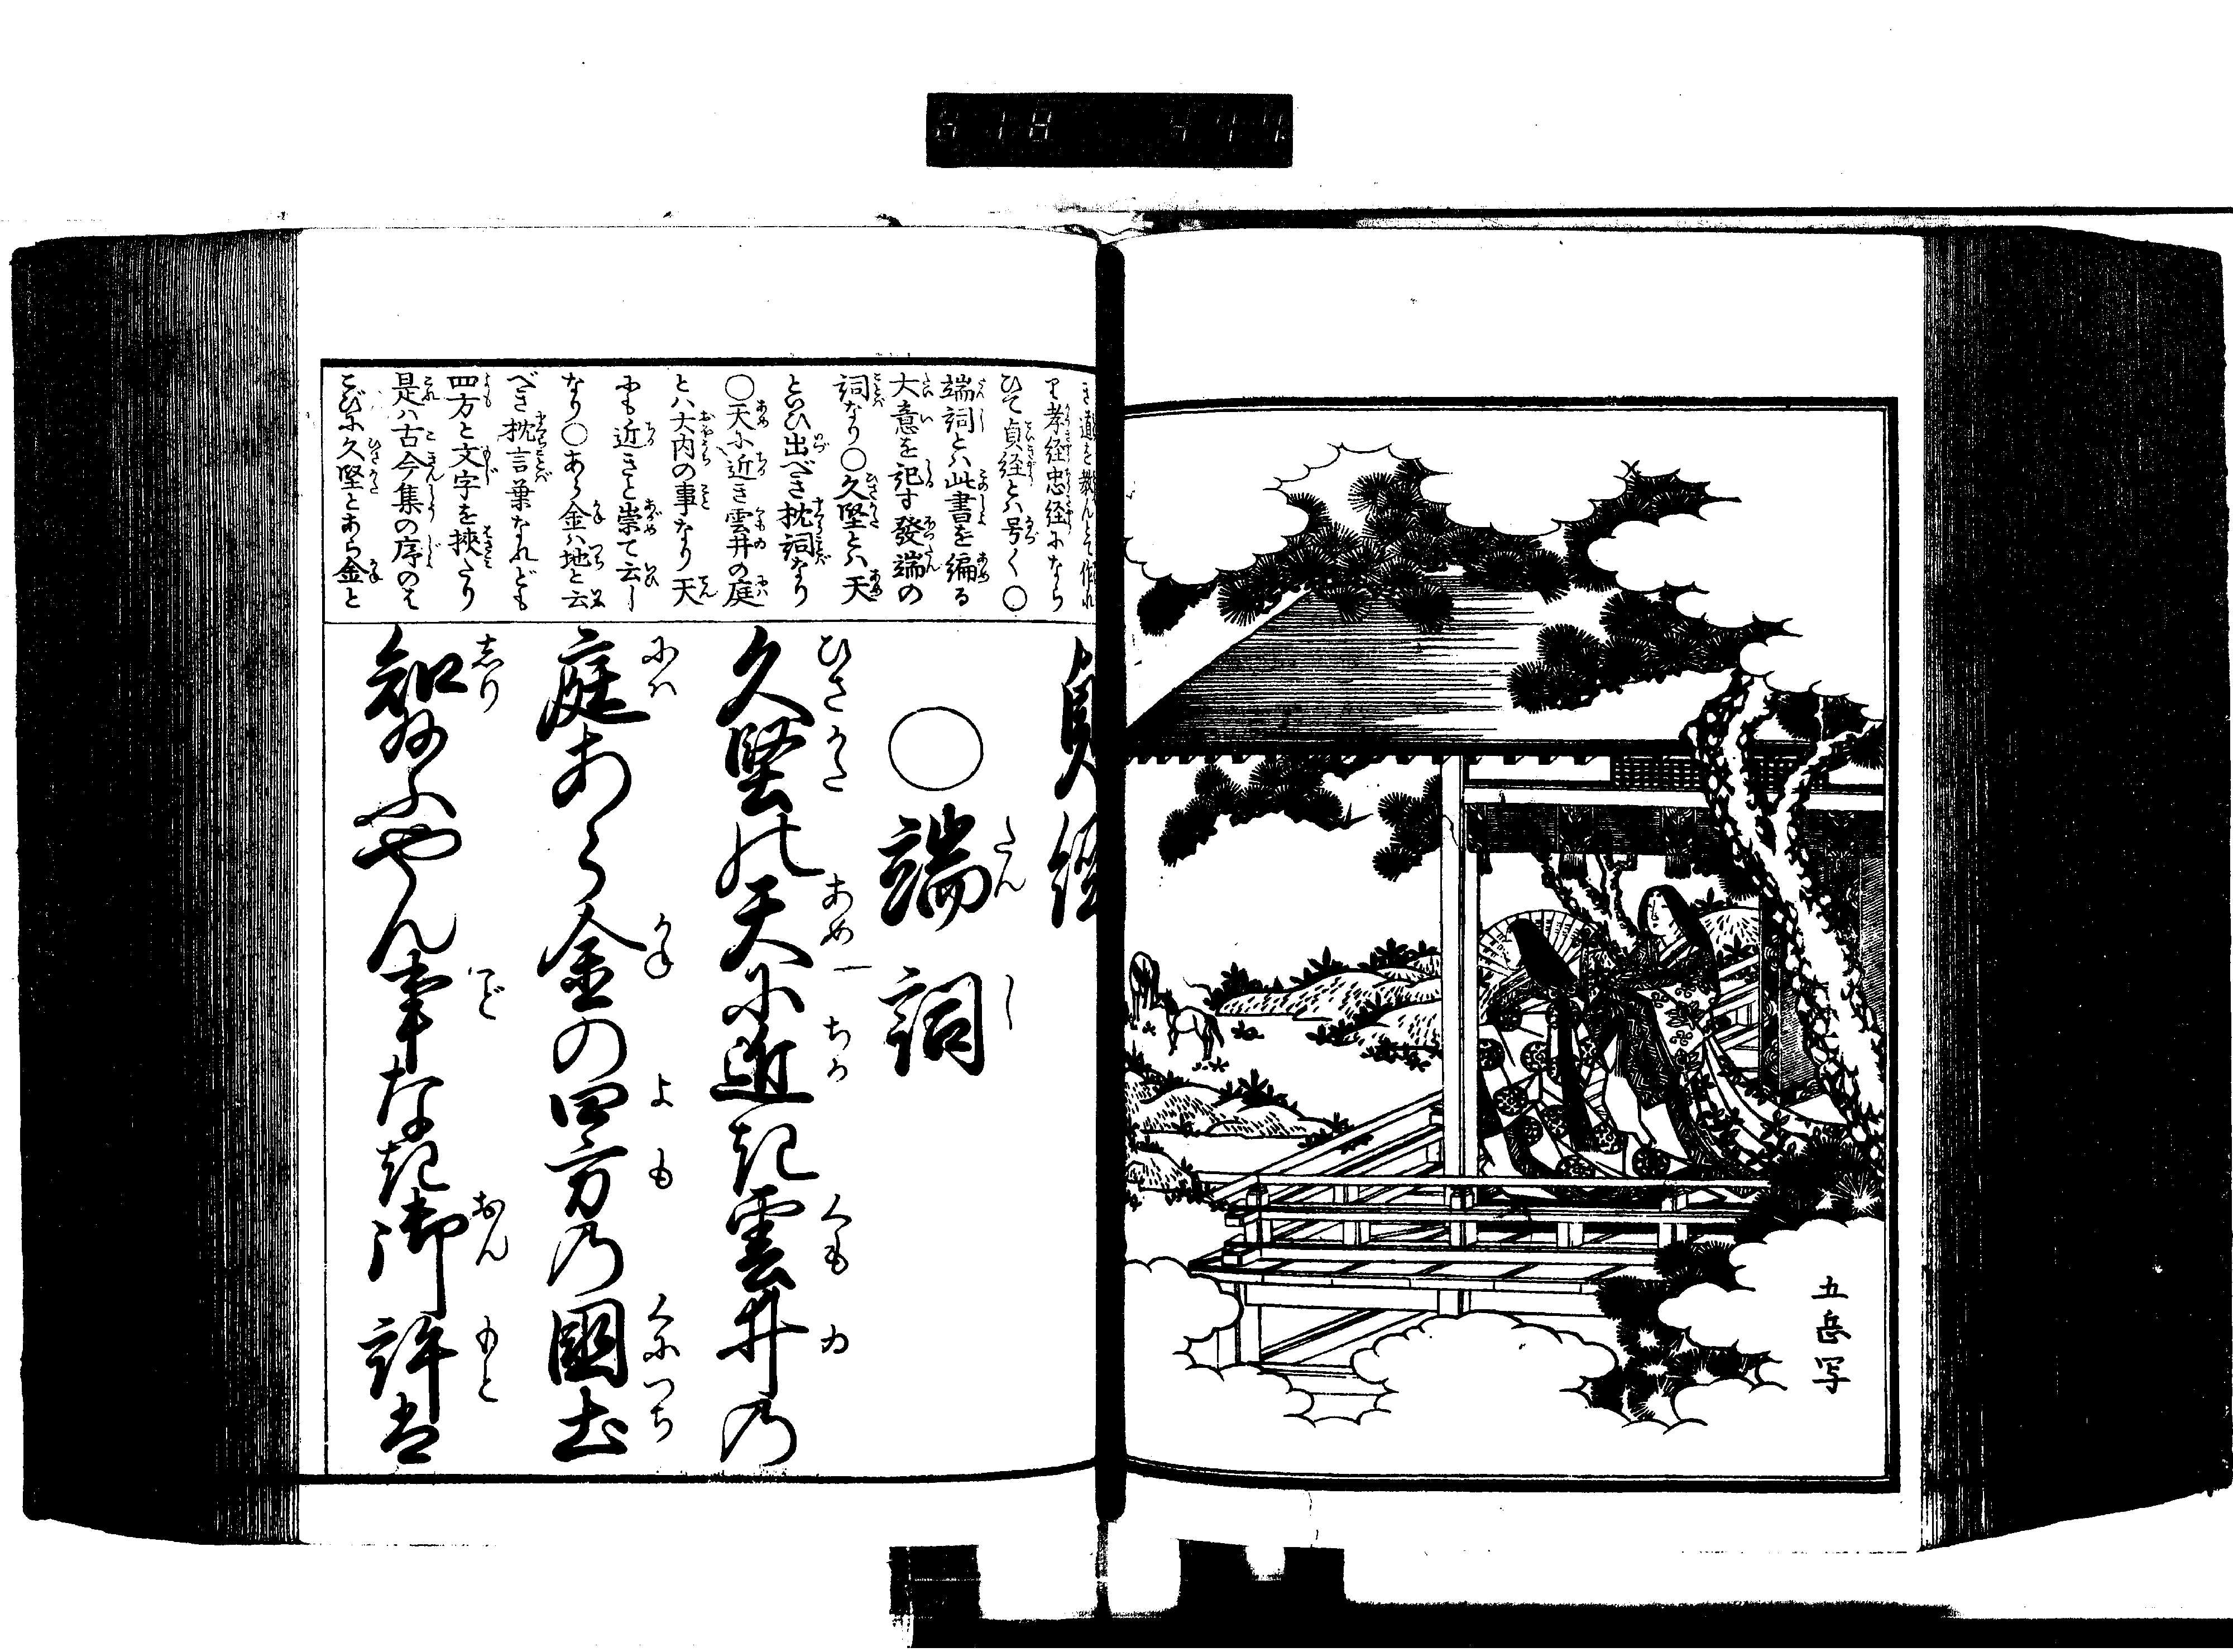 五岳写
き道を教んとて作れ
り孝経忠経になら
ひて貞経とハ号く〇
端詞とハ此書を編る
大意を記す發端の
詞なり〇久堅とハ天
といひ出べき枕詞なり
〇天に近き雲井の庭
とハ大内の事なり天
にも近きと崇て云し
なり〇あら金ハ地と云
べき枕言葉なれども
四方と文字を挾たり
是ハ古今集の序のは
こびに久堅とあら金と
貞經
〇端詞
久堅の天に近き雲井の
庭あら金の四方の國土
知給ふやん事なき御許は